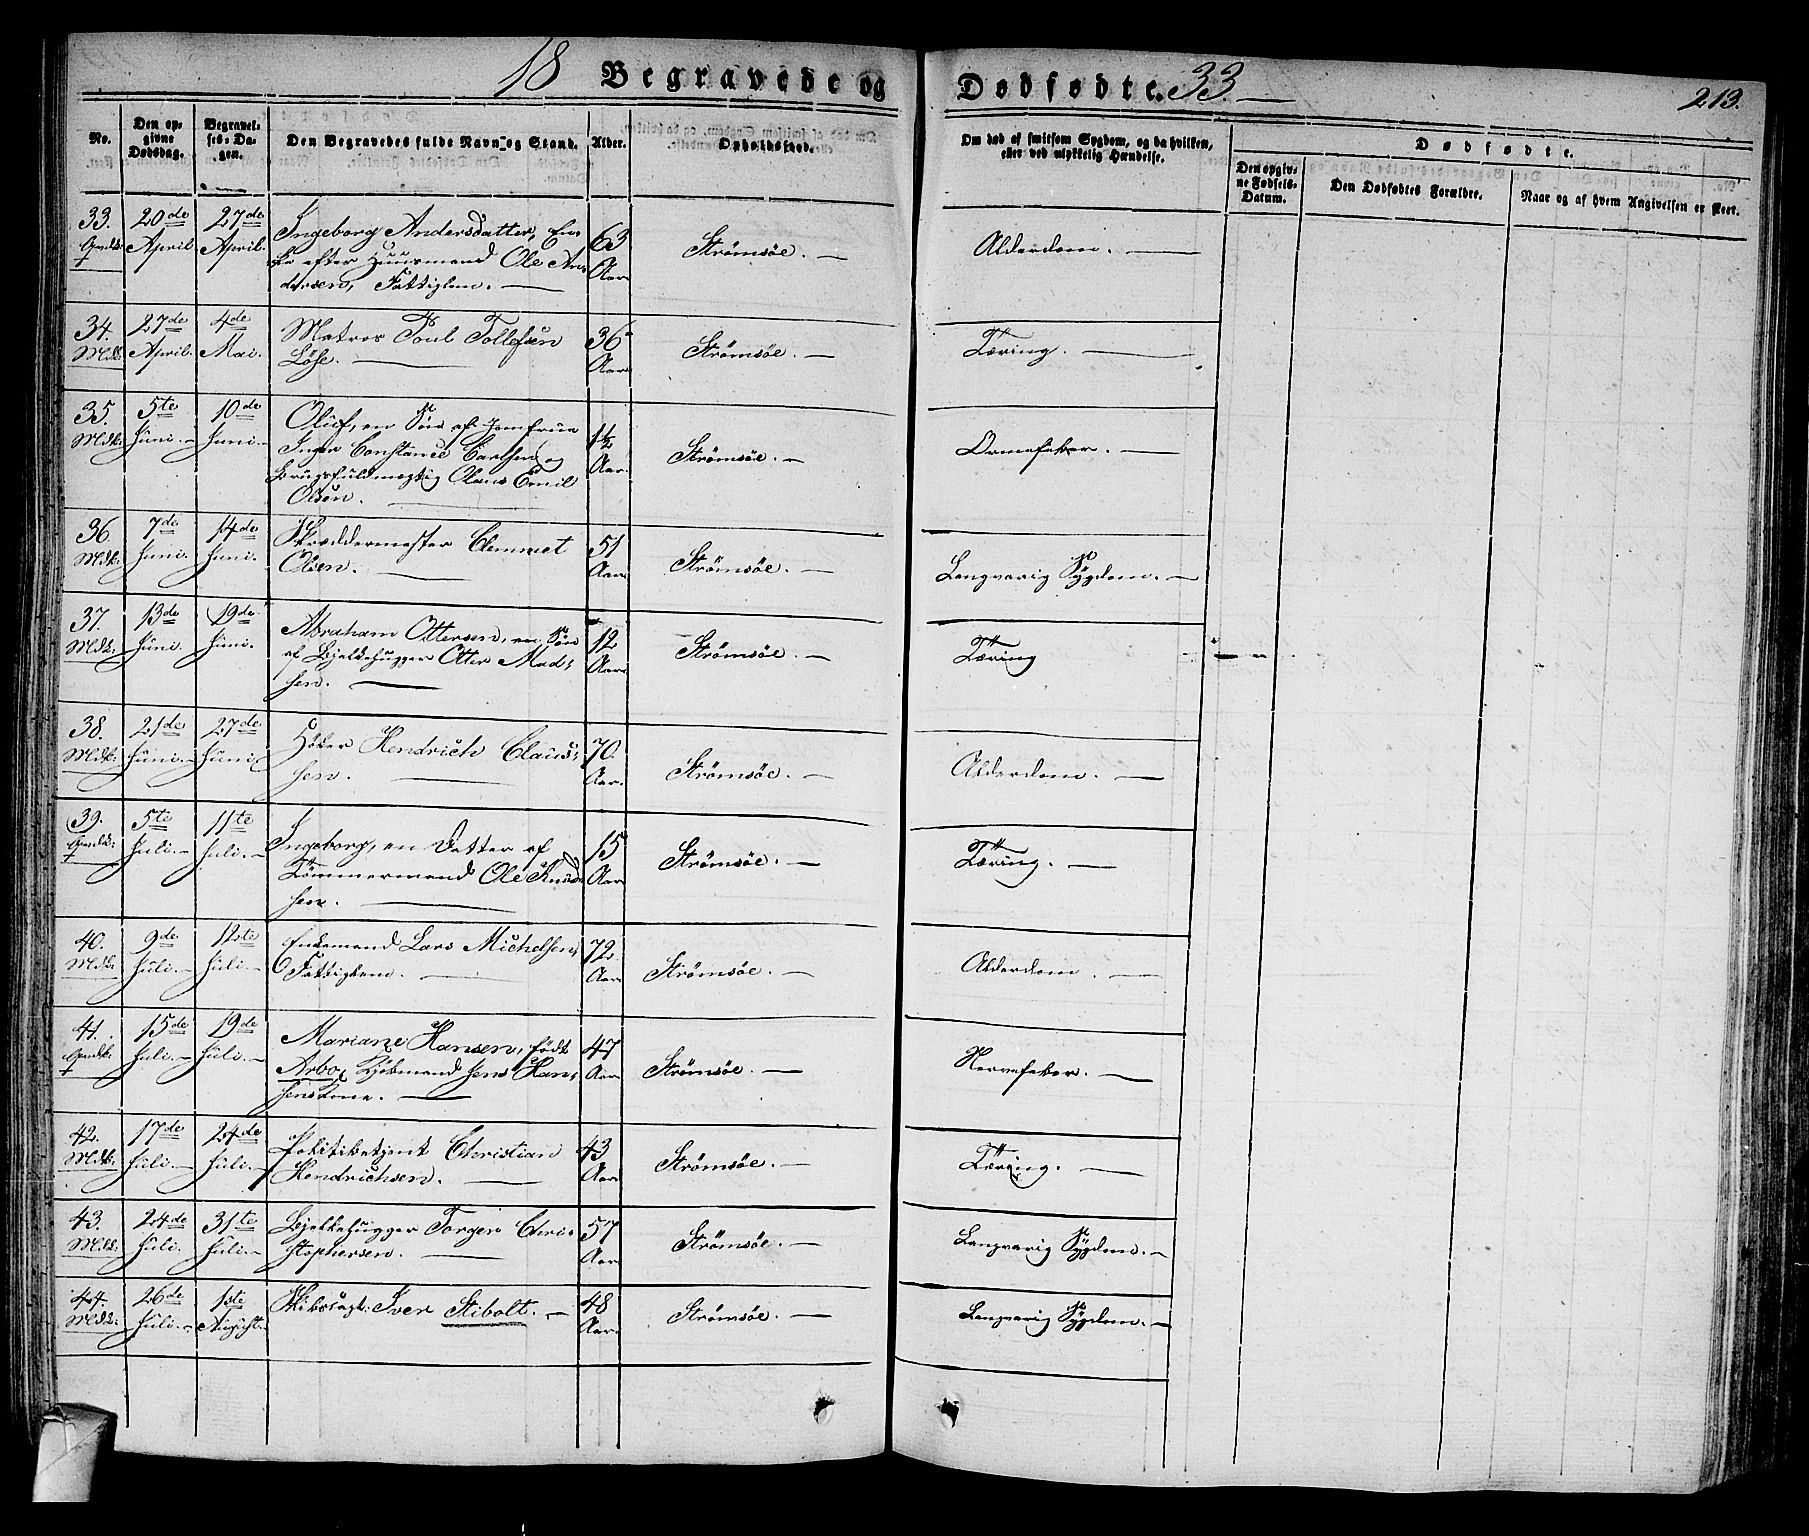 18 Begravede og Dødfødte. 33. 213.
No. Den opgivne Dødsdag. Begravelses-Dagen. Den Begravedes fulde Navn og Stand. Alder. Opholdssted. Om død af smitsom Sygdom, og da hvilken, eller ved ulykkelig Hændelse. Dødfødte.
Den opgivne Fødsels-Datum. Den Dødfødtes Forældre. Naar og af hvem Angivelsen er skeet.
33. 20de April 27de April. Ingeborg Andersdatter, En-
ke efter Huusmand Ole An-
dersen, Fattiglem. 63 Aar Strømsøe. Alderdom.
34. Mdk. 27de April. 4de Mai. Matros Poul Tollefsen
Löse. 36 Aar Strømsøe. Tæring.
35. Mdk. 5te Juni. 10de Juni. Oluf, en Søn af Jomfrue
Inger Constance Carlsen og
Brugsfuldmægtig Olaus Emil
Olsen. 1½ Aar. Strømsøe. Ormefeber.
36. Mdk. 7de Juni. 14de Juni. Skræddermester Clemmet
Olsen. 51 Aar Strømsøe. Langvarig Sygdom.
37. Mdk. 13de Juni. 19de Juni. Abraham Ottersen, en Søn
af Bjelkehugger Otter Mad-
sen. 12 Aar Strømsøe. Tæring
38. Mdk. 21de Juni. 27de Juni Höker Hendrich Claus-
sen. 70. Aar. Strømsøe. Alderdom.
39. 5te Juli. 11te Juli. Ingeborg, en Datter af
Tömmermand Ole Knud-
sen. 15 Aar Strømsøe. Tæring.
40. Mdk. 9de Juli. 12te Juli. Enkemand Lars Michelsen,
Fattiglem. 72 Aar Strømsøe. Alderdom.
41. 15de Juli. 19de Juli. Mariane Hansen, født
Arbo, Kjöbmand Jens Han-
sens Kone. 47 Aar Strømsøe. Nervefeber.
42. Mdk. 17de Juli. 24de Juli. Politibetjent Christian
Hendrichsen. 43 Aar Strømsøe. Tæring.
43. Mdk. 24de Juli. 31te Juli. Bjelkehugger Torger Chri-
stophersen. 57 Aar Strømsøe. Langvarig Sygdom.
44. Mdk. 26de Juli. 1ste August. Iver Stibolt. 48 Aar. Strømsøe. Langvarig Sygdom.